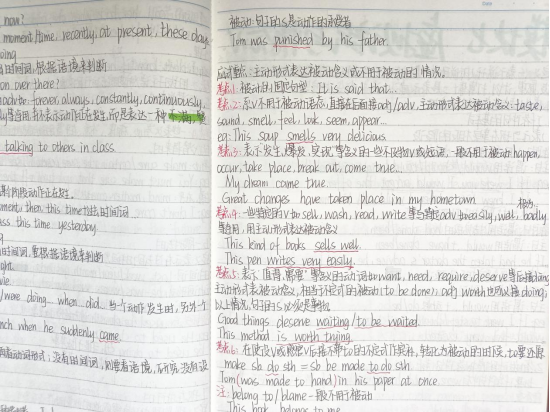 now?
moment/time, recently, at present, these day
oing
时间词,根据语境来判断
on over there?
adv forever, always, constantly, continuously,
等合用,并不表示动作正在发生,而是表达一种不满,赞
talking to others in class.
moment, then, this time 时间词
ass this time yesterday.
时间词,要根据语境来判断
ght.
vie
/were doing when did. 当一个动作发生时,另外一个
nch when he suddenly came.
动词形式:没有时间词,则要看语境,
被动:句子的S是动作的承受者
Tom was punished by his father.
应试重点:主动形式表达被动含义或不用被动的情况。
考点1:被动的固定句型:It is said that...
考点2:系V不用于被动语态,直接在后面接adj/adv,主动形式表达被动含义:taste,
sound, smell, feel, look, seem, appear...
eg: This soup smells very delicious.
考点3:表示发生,爆发,实现等含义的一些不及物V或短语,一般不用于被动 happen,
occur, take place, break out, come true...
My dream come true.
Great changes have taken place in my hometown
考点4:一些特定的V如 sell, wash, read, write 等与adv如easily, well, badly
等合用,用主动形式表达被动含义
This kind of books sells well.
This pen writes very easily.
考点5:表示"值得,需要"等含义的动词如want, need, require, deserve等后接doing
主动形式表被动含义,相当于不定式的被动(to be done), adj worth也可以接doing,
以上情况,句子的S必须是事物
Good things deserve waiting/to be waited.
This method is worth trying.
考点6:在使役V或感官V后接不带to的不定式作宾补,转化为被动的时候,to要还原
make sb do sth = sb be made to do sth.
Tom (was made to hand) in his paper at once.
注:belong to/blame 一般不用于被动
This book belongs to me.